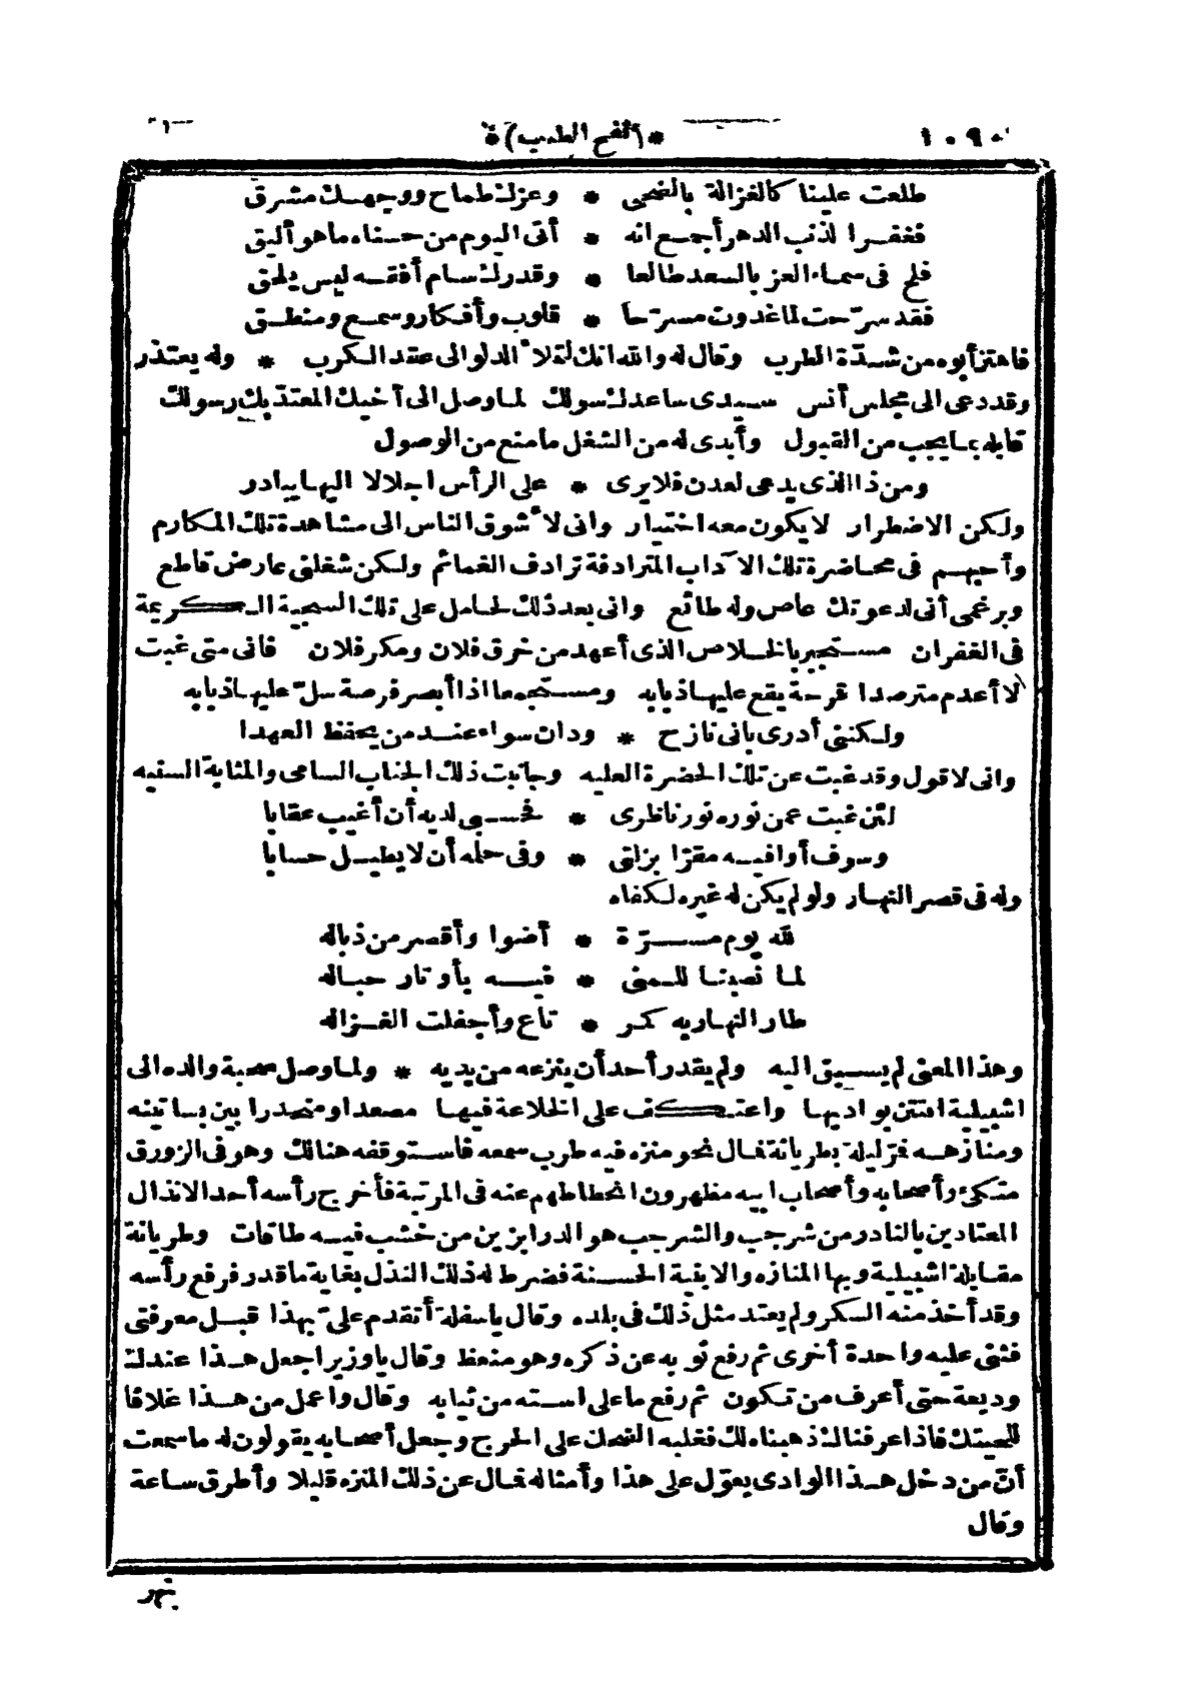 ١٠٩٠ *(نفح الطيب)*
طلعت علينا كالغزالة بالضحى * وعزك طماح ووجهك مشرق
فغفرا لذنب الدهر أجمع انه * أتى اليوم من حسناه ما هو أليق
فلح فى سماء العز بالسعد طالعا * وقدرك سام أفقه ليس يلحق
فقد سرّحت لما غدوت مسرّحا * قلوب وأفكار وسمع ومنطق
فاهتز أبوه من شدّة الطرب وقال له والله انك لتملأ الدلو الى عقد الكرب * وله يعتذر
وقد دعى الى مجلس أنس سيدى ساعدك سولك لما وصل الى أخيك المعتد بك رسولك
قابله بما يجب من القبول وأبدى له من الشغل ما منع من الوصول
ومن ذا الذى يدعى لعدن فلا يرى * على الرأس اجلالا اليها يبادر
ولكن الاضطرار لا يكون معه اختيار وانى لا شوق الناس الى مشاهدة تلك المكارم
وأحبهم فى محاضرة تلك الآداب المترادفة ترادف الغمائم ولكن شغلنى عارض قاطع
وبرغمى أنى لدعوتك عاص وله طائع وانى بعد ذلك لحامل على تلك السجية الكريمة
فى الغفران مستجير بالخلاص الذى أعهد من خرق فلان ومكر فلان فانى متى غبت
لا أعدم مترصدا قرحة يقع عليها ذبابه ومستجمعا اذا أبصر فرصة سلّ عليها ذبابه
ولكننى أدرى بانى نازح * ودان سواء عند من يحفظ العهدا
وانى لا قول وقد غبت عن تلك الحضرة العليه وجانبت ذلك الجناب السامى والمثابة السنيه
لئن غبت عمن نوره نور ناظرى * فحسبى لديه أن أغيب عقابا
وسوف أوافيه مقرّا بزلتى * وفى حلمه أن لا يطيل حسابا
وله فى قصر النهار ولو لم يكن له غيره لكفاه
لله يوم مسرّة * أضوا وأقصر من ذباله
لما نصبنا للمنى * فيه بأوتار حباله
طار النهار به كمر * تاع وأجفلت الغزاله
وهذا المعنى لم يسبق اليه ولم يقدر أحد أن ينزعه من يديه * ولما وصل صحبة والده الى
اشبيلية افتتن بواديها واعتكف على الخلاعة فيها مصعدا ومنحدرا بين بساتينه
ومنازهه فمرّ ليلة بطريانة فمال نحو منزه فيه طرب سمعه فاستوقفه هنالك وهو فى الزورق
متكئ وأصحابه وأصحاب ابيه مظهرون انحطاطهم عنه فى المرتبة فأخرج رأسه أحد الانذال
المعتادين بالنادر من شرجب والشرجب هو الدرابزين من خشب فيه طاقات وطريانة
مقابلة اشبيلية وبها المنازه والابنية الحسنة فضرط له ذلك النذل بغاية ما قدر فرفع رأسه
وقد أخذ منه السكر ولم يعتد مثل ذلك فى بلده وقال يا سفلة أتقدم علىّ بهذا قبل معرفتى
فثنى عليه واحدة أخرى ثم رفع ثوبه عن ذكره وهو منعظ وقال يا وزير اجعل هذا عندك
وديعة حتى أعرف من تكون ثم رفع ما على استه من ثيابه وقال واعمل من هذا غلافا
للحيتك فاذا عرفناك ذهبناه لك فغلبه الضحك على الحرج وجعل أصحابه يقولون له ما سمعت
أنّ من دخل هذا الوادى يعوّل على هذا وأمثاله فمال عن ذلك المنزه قليلا وأطرق ساعة
وقال
نهر